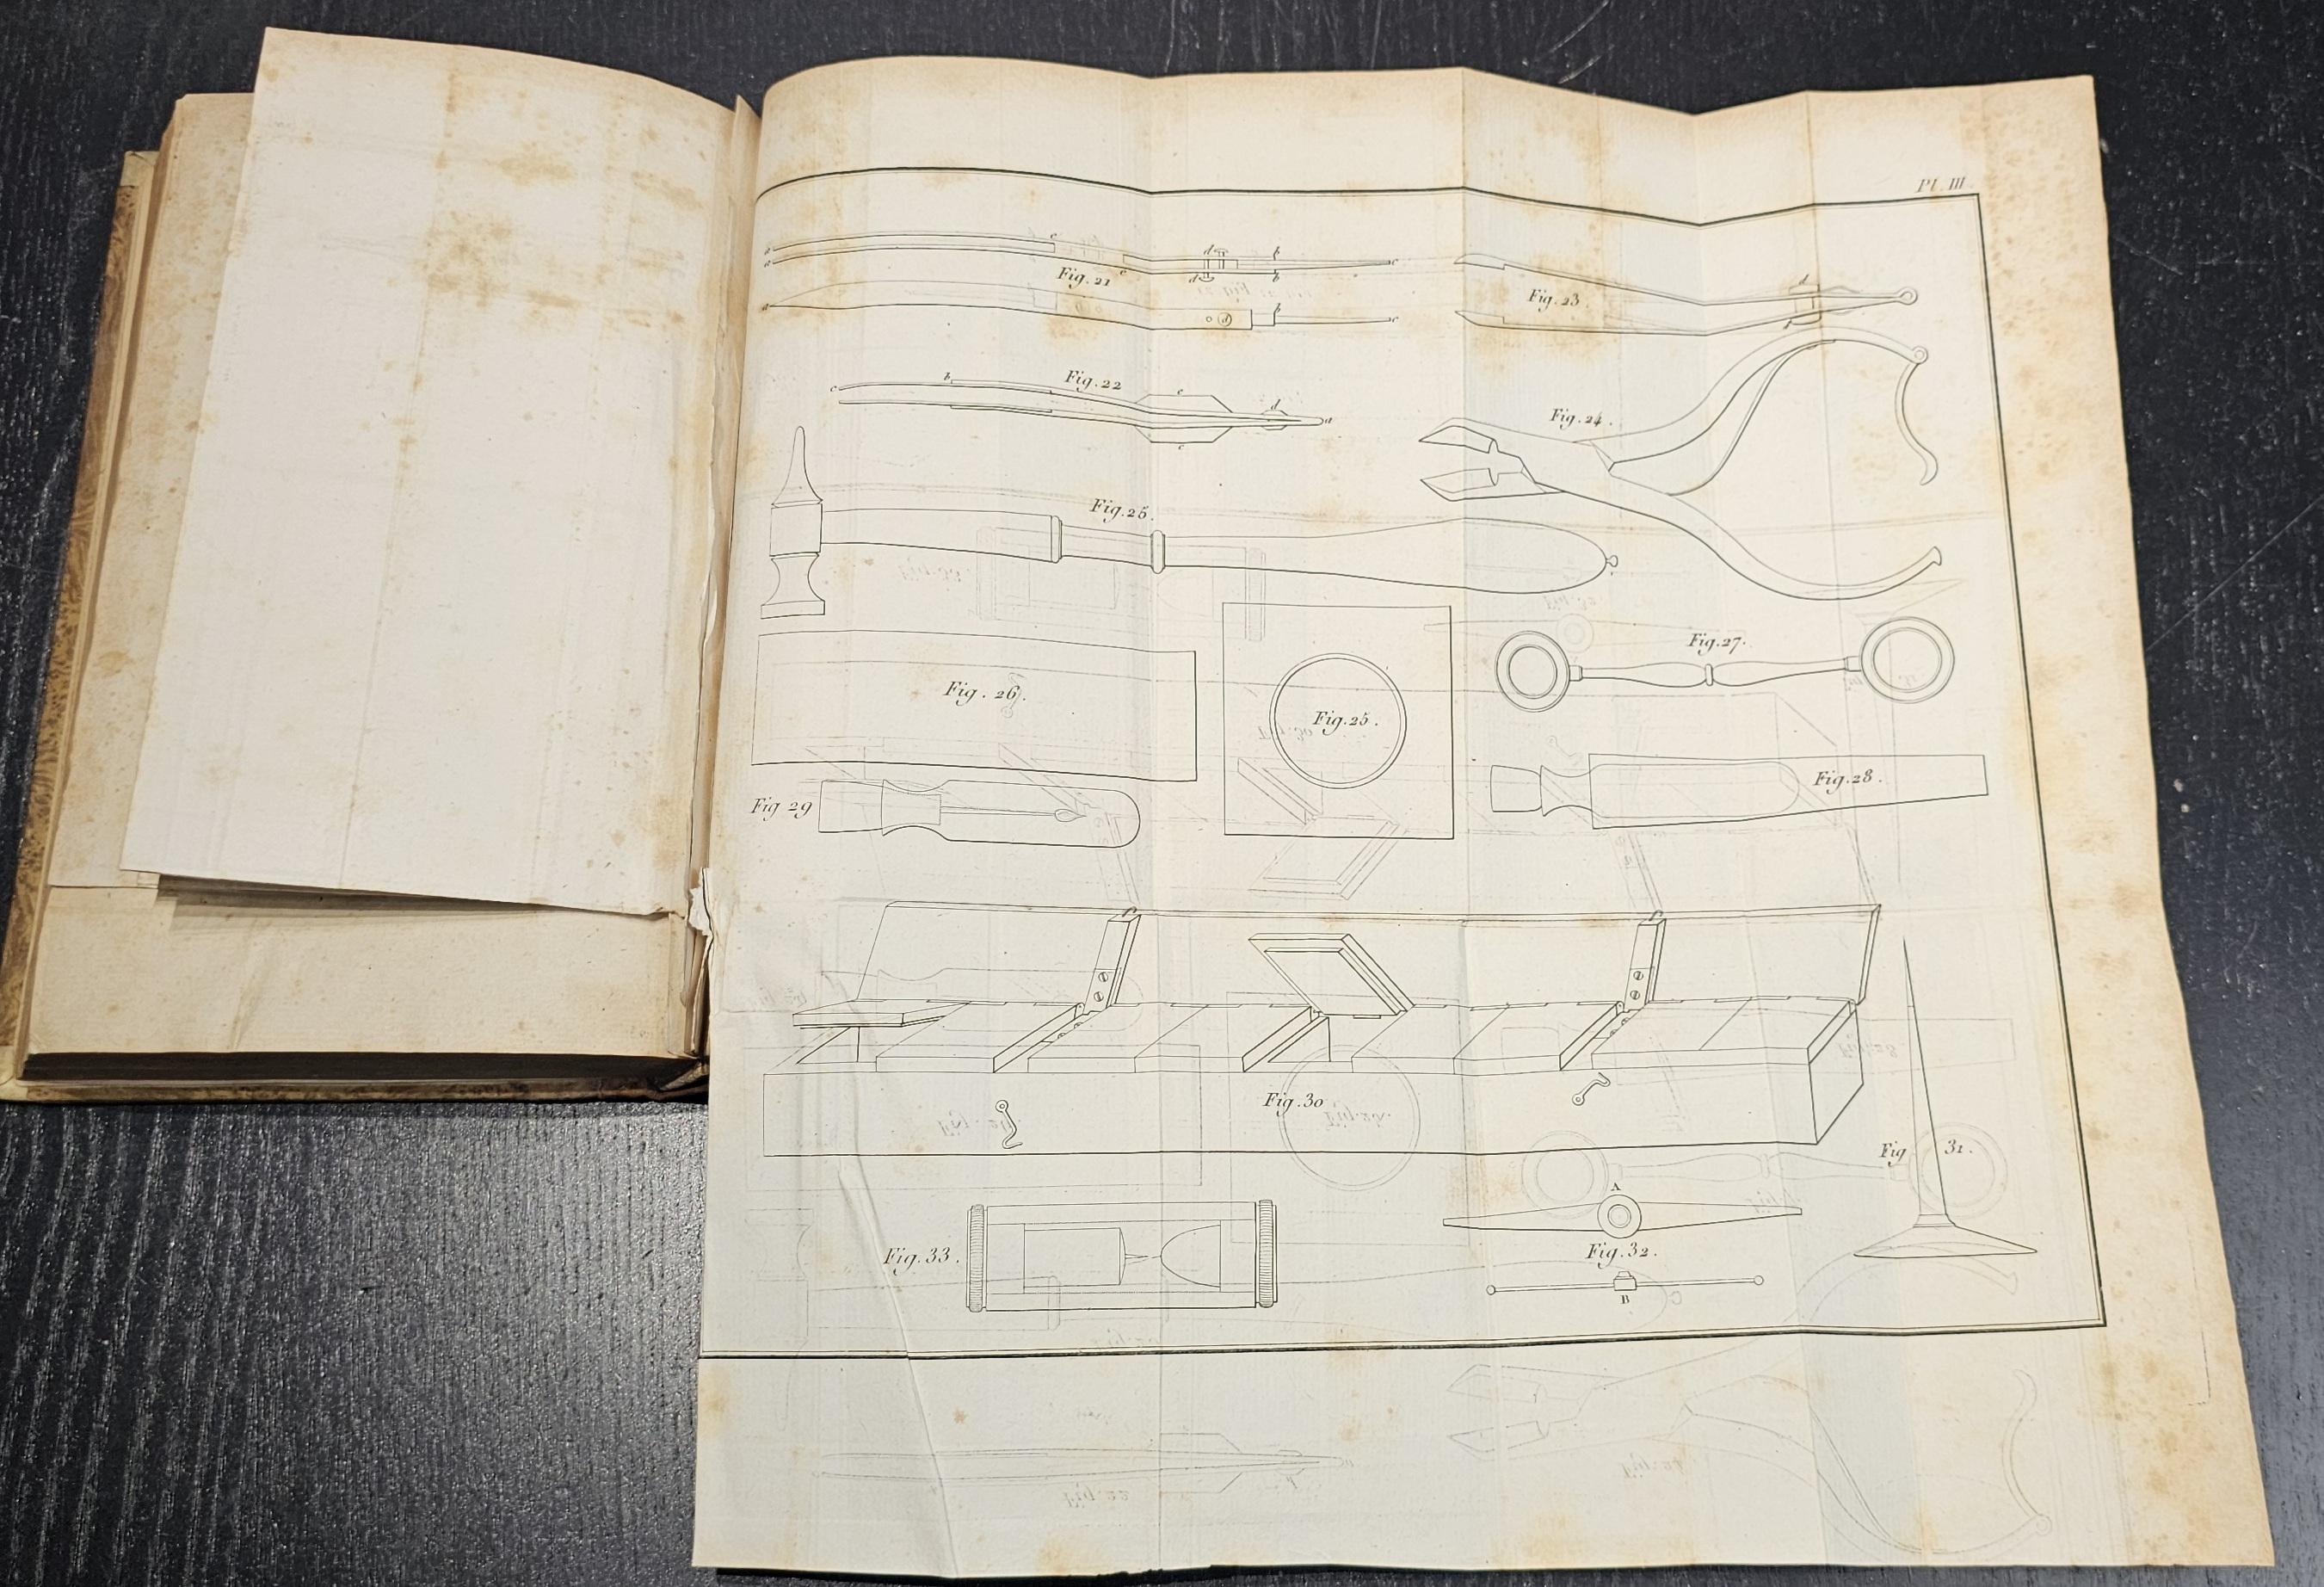 Pl. III
c
d
b
c
Fig. 21
c
d
b
d
Fig. 23
a
b
c
f
Fig. 22
c
b
e
d
a
e
Fig. 24.
Fig. 25.
Fig. 27.
Fig. 26.
Fig. 25.
Fig. 28.
Fig 29
Fig. 30
Fig 31.
A
Fig. 33.
Fig. 32.
B